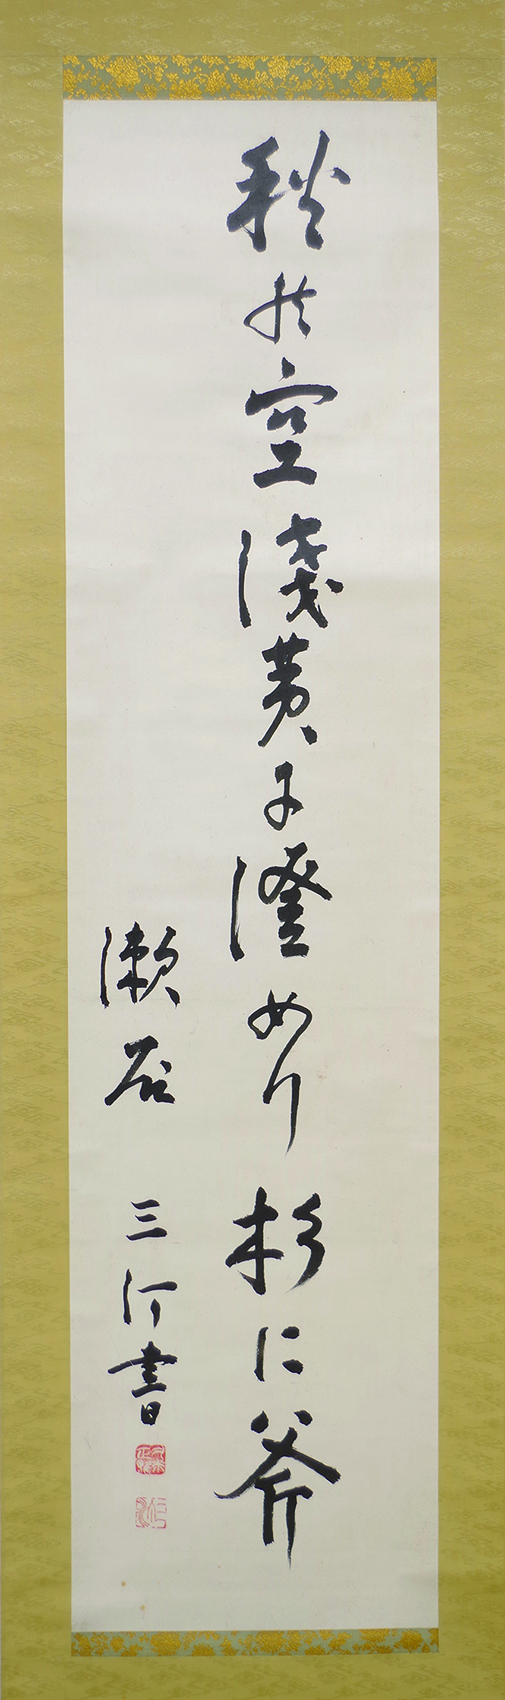 秋の空浅黄に澄めり杉に斧
漱石
三汀書